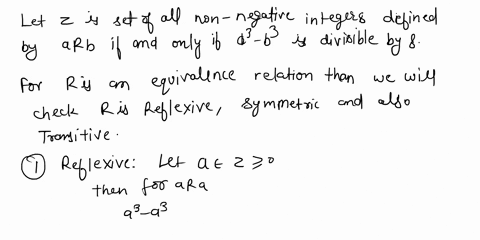 Let z is set of all non-negative integers defined
by aRb if and only if a³-b³ is divisible by 8.
For R is an equivalence relation than we will
check R is Reflexive, symmetric and also
Transitive.
① Reflexive: Let a ∈ z ≥ 0
then for aRa
a³-a³